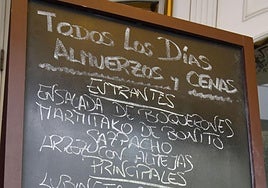 TODOS LOS DÍAS
ALMUERZOS Y CENAS
ENTRANTES
ENSALADA DE BOQUERONES
MARMITAKO DE BONITO
GAZPACHO
ARROZ CON ALMEJAS
PRINCIPALES
LUBINA